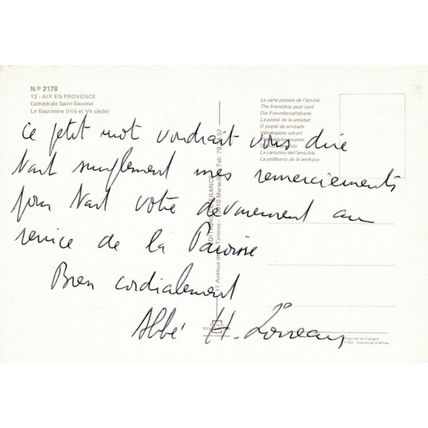 N.º 2178
13 - AIX EN PROVENCE
Cathédrale Saint-Sauveur
Le Baptistère (IVè et Vè siècle)
La carte postale de l'amitié
The friendship post card
Die Freundschaftskarte
La postal de la amistad
O postal de amizade
ce petit mot voudrait vous dire
tout simplement mes remerciements
pour tout votre dévouement au
service de la Paroisse
Bien cordialement
Abbé H.